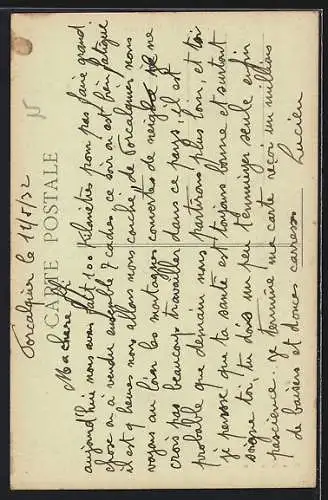 CARTE POSTALE
Forcalquier le 14/5/32
Ma chère
aujourd'hui nous avons fait 100 Kilomètres pas faire grand
chose on a vendu ensemble 7 cadres ce soir on est bien fatigué
il est 9 heures nous allons nous couché de Forcalquier nous
voyons au loin les montagnes couvertes de neige ne
crois pas beaucoup travailler dans ce pays, il est
probable que demain nous partirons plus loin, et toi
je pense que ta santé est toujours bonne et surtout
soigne toi, tu dois un peu t'ennuiyer seule enfin
pascience. Je termine ma carte reçoi un milliers
de baisers et douces carresses
Lucien